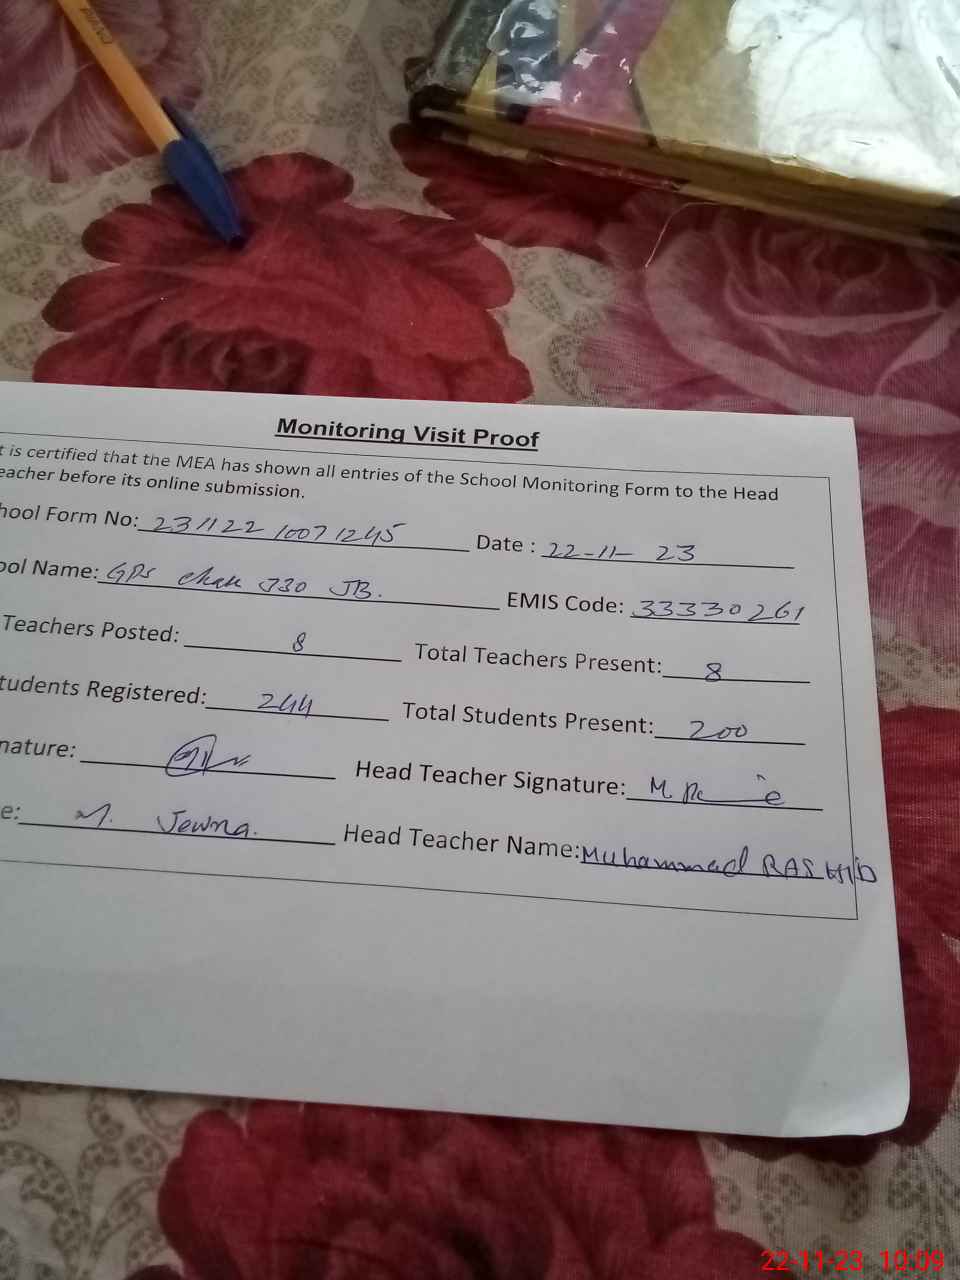 Monitoring Visit Proof
t is certified that the MEA has shown all entries of the School Monitoring Form to the Head
eacher before its online submission.
hool Form No: 231122 1007 1245 Date : 22-11- 23
ool Name: GPS chak 330 JB. EMIS Code: 33330261
Teachers Posted: 8 Total Teachers Present: 8
tudents Registered: 244 Total Students Present: 200
nature: Head Teacher Signature:
e: M. Head Teacher Name: Muhammad RASHID
22-11-23 10:09